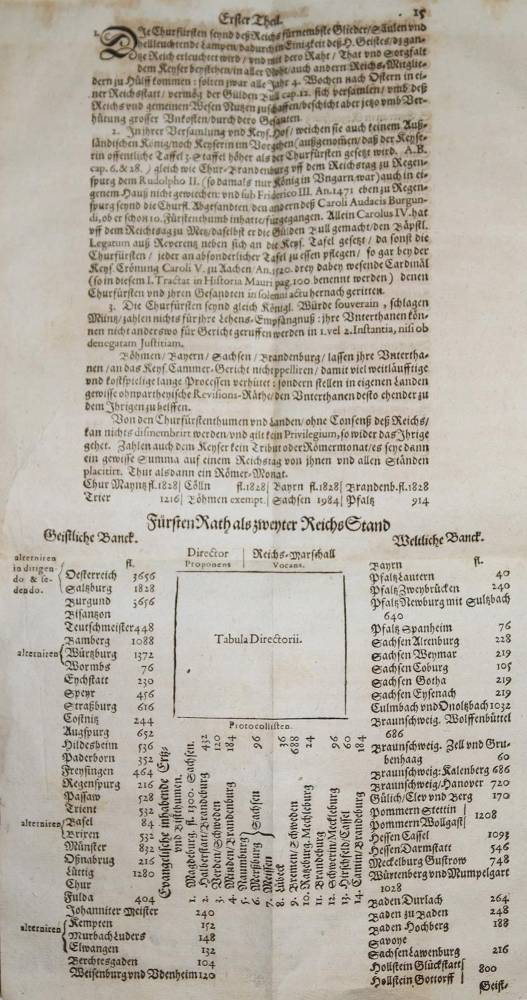 Erster Theil. 15
1. Die Churfürsten seynd deß Reichs fürnembste Glieder/ Säulen vnd
hellleuchtende Lampen/ dadurch in Einigkeit deß H. Geistes/ dz gan-
tze Reich erleuchtet wird/ vnd mit dero Raht/ That vnd Sorgfalt
dem Keyser beystehen/ in aller Noht/ auch andern Reichs-Mitglie-
dern zu Hülff kommen: solten zwar alle Jahr 4. Wochen nach Ostern in ei-
ner Reichsstatt/ vermög der Gülden Bull cap. 12. sich versamlen/ vmb deß
Reichs vnd gemeinen Wesen Nutzen zu schaffen/ beschicht aber jetzo vmb Ver-
hütung grosser Vnkosten/ durch dero Gesanten.
2. In ihrer Versamlung vnd Keys. Hof/ weichen sie auch keinem Auß-
ländischen König/ noch Keyserin im Vorgehen (außgenomen/ daß der Keyse-
rin öffentliche Taffel 3. Staffel höher als der Churfürsten gesetzt wird. A. B.
cap. 6. & 28. ) gleich wie Chur-Brandenburg vff dem Reichstag zu Regen-
spurg dem Rudolpho II. (so damals nur König in Vngarn war) auch in ei-
genem Hauß nicht gewichen: vnd sub Friderico III. An. 1471 eben zu Regen-
spurg seynd die Churfl. Abgesandten den andern deß Caroli Audacis Burgun-
di, ob er schon 10. Fürstenthumb inhatte/ fürgegangen. Allein Carolus IV. hat
vff dem Reichstag zu Metz/ daselbst er die Gülden Bull gemacht/ den Bäpstl.
Legatum auß Reverentz neben sich an die Keys. Tafel gesetzt/ da sonst die
Churfürsten/ jeder an absonderlicher Tafel zu essen pflegen/ so gar bey der
Keys. Crönung Caroli V. zu Aachen/ An. 1520. drey dabey wesende Cardinäl
(so in diesem I. Tractat in Historia Mauri pag. 100 benennt werden) denen
Churfürsten vnd ihren Gesandten in solenni actu hernach geritten.
3. Die Churfürsten seynd gleich Königl. Würde souverain, schlagen
Müntz/ zahlen nichts für ihre Lehens-Empfängnuß: ihre Vnterthanen kön-
nen nicht anderswo für Gericht geruffen werden in 1. vel 2. Instantia, nisi ob
denegatam Justitiam.
Böhmen/ Bayern/ Sachsen/ Brandenburg/ lassen jhre Vntertha-
nen/ an das Keys. Cammer-Gericht nicht appelliren/ damit viel weitläufftige
vnd kostspielige lange Processen verhütet: sondern stellen in eigenen Landen
gewisse ohnpartheyische Revisions-Räthe/ den Vnterthanen desto ehender zu
dem Jhrigen zu helffen.
Von den Churfürstenthumen vnd Landen/ ohne Consenß deß Reichs/
kan nichts dismembrirt werden/ vnd gilt kein Privilegium, so wider das Jhrige
gehet. Zahlen auch dem Keyser kein Tribut oder Römermonat/ es seye dann
ein gewisse Summa auf einem Reichstag von ihnen vnd allen Ständen
placitirt. Thut alsdann ein Römer-Monat.
Chur Mayntz fl. 1828 | Cölln fl. 1828 | Bayrn fl. 1828 | Brandenb. fl. 1828
Trier 1216 | Böhmen exempt. | Sachsen 1984 | Pfaltz 914
Fürsten Rath als zweyter Reichs Stand
Geistliche Banck.
alterniren in dirigendo & sedendo.
fl.
Oesterreich 3656
Saltzburg 1828
Burgund 3656
Bisantzon
Teutschmeister 448
alterniren
Bamberg 1088
Würtzburg 1372
Wormbs 76
Eychstätt 230
Speyr 456
Straßburg 616
Costnitz 244
Augspurg 652
Hildesheim 536
Paderborn 352
Freysingen 464
Regenspurg 216
Passaw 528
Trient 532
alterniren
Basel 84
Brixen 532
Münster 832
Oßnabrug 216
Lüttig 1280
Chur
Fulda 404
Johanniter Meister 240
alterniren
Kempten 152
Murbach Luders 148
Elwangen 132
Berchtesgaden 104
Weisenburg vnd Vdenheim 120
Director Proponens | Reichs-Marschall Vocans.
Tabula Directorii.
Protocollisten.
Evangelische inhabende Ertz-
vnd Bistthumen.
1. Magdeburg. fl. 1300. Sachsen.
2. Halberstatt/ Brandenburg 432
3. Verden/ Schweden 120
4. Minden/ Brandenburg 184
5. Naumburg
6. Merßburg
7. Meyssen
Sachsen 96
8. Lübeck 36
9. Bremen/ Schweden 688
10. Ratzeburg. Mechleburg 24
11. Brandenburg
12. Schwerin/ Meckleburg 96
13. Hirschfeld/ Cassel 60
14. Camin/ Brandenburg 184
Weltliche Banck.
fl.
Bayrn
Pfaltz Lautern 40
Pfaltz Zweybrücken 240
Pfaltz Newburg mit Sultzbach
640
Pfaltz Spanheim 76
Sachsen Altenburg 228
Sachsen Weymar 219
Sachsen Coburg 105
Sachsen Gotha 219
Sachsen Eysenach 219
Culmbach vnd Onoltzbach 1032
Braunschweig. Wolffenbüttel
686
Braunschweig. Zell vnd Gru-
benhaag 60
Braunschweig: Kalenberg 686
Braunschweig/ Hanover 720
Gülich/ Clev vnd Berg 170
Pommern Stettin
Pommern Wollgast
1208
Hessen Cassel 1093
Hessen Darmstatt 546
Meckelburg Gustrow 748
Würtenberg vnd Mumpelgart
1028
Baden Durlach 264
Baden zu Baden 248
Baden Hochberg 188
Savoye
Sachsen Lawenburg 216
Hollstein Glückstatt
Hollstein Gottorff
800
Geist-